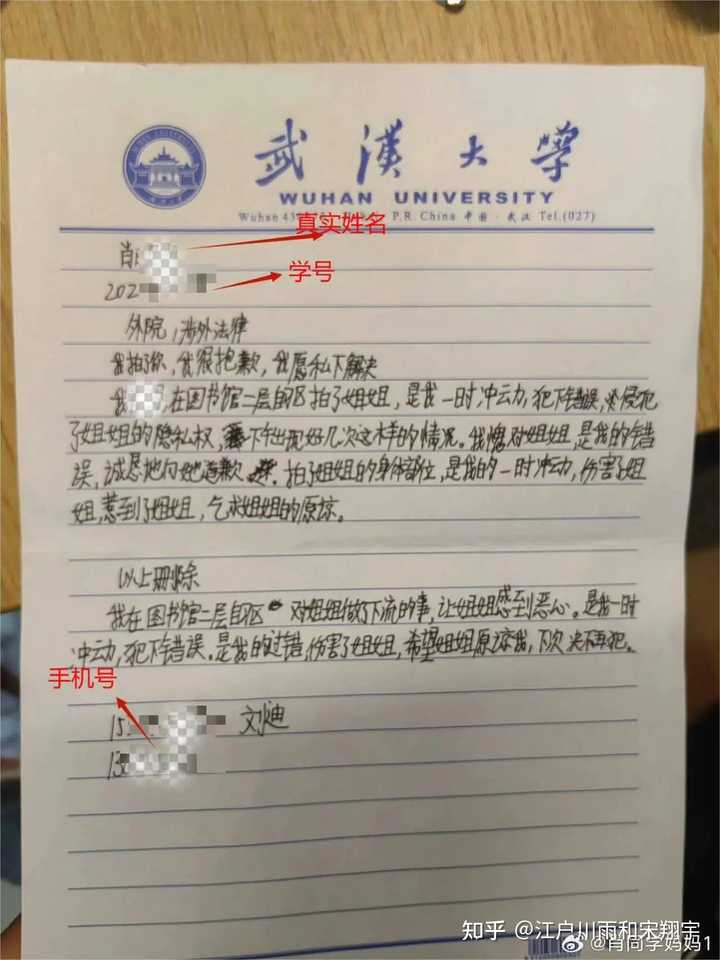 武漢大學
WUHAN UNIVERSITY
Wuhan 43 P.R. China 中国·武汉 Tel.(027)
真实姓名
肖
学号
202
外院,涉外法律
我拍了你,我很抱歉,我愿私下解决
我 ,在图书馆二层自习区拍了姐姐,是我一时冲动,犯下错误,侵犯
了姐姐的隐私权,下午出现好几次这样的情况。我愧对姐姐,是我的错
误,诚恳地向她道歉。拍了姐姐的身体部位,是我的一时冲动,伤害了姐
姐,惹到了姐姐,乞求姐姐的原谅。
以上删除
我在图书馆二层自习区对姐姐做了下流的事,让姐姐感到恶心。是我一时
冲动,犯下错误。是我的过错,伤害了姐姐,希望姐姐原谅我,下次决不再犯。
手机号
15
13
知乎 @江户川雨和宋翔宇
@肖同学妈妈1